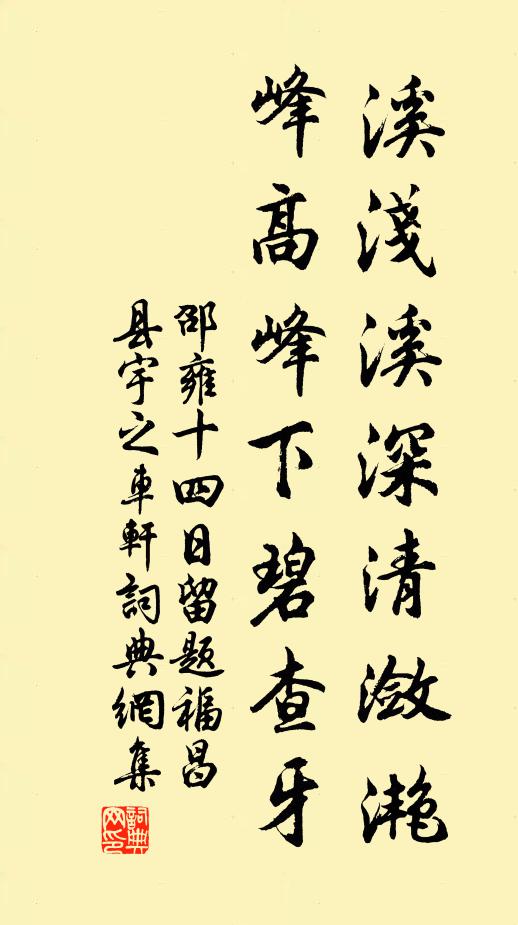 溪淺溪深清瀲灧
峰高峰下碧查牙
邵雍十四日留題福昌
县宇之車軒詞典網集
詞典
网印